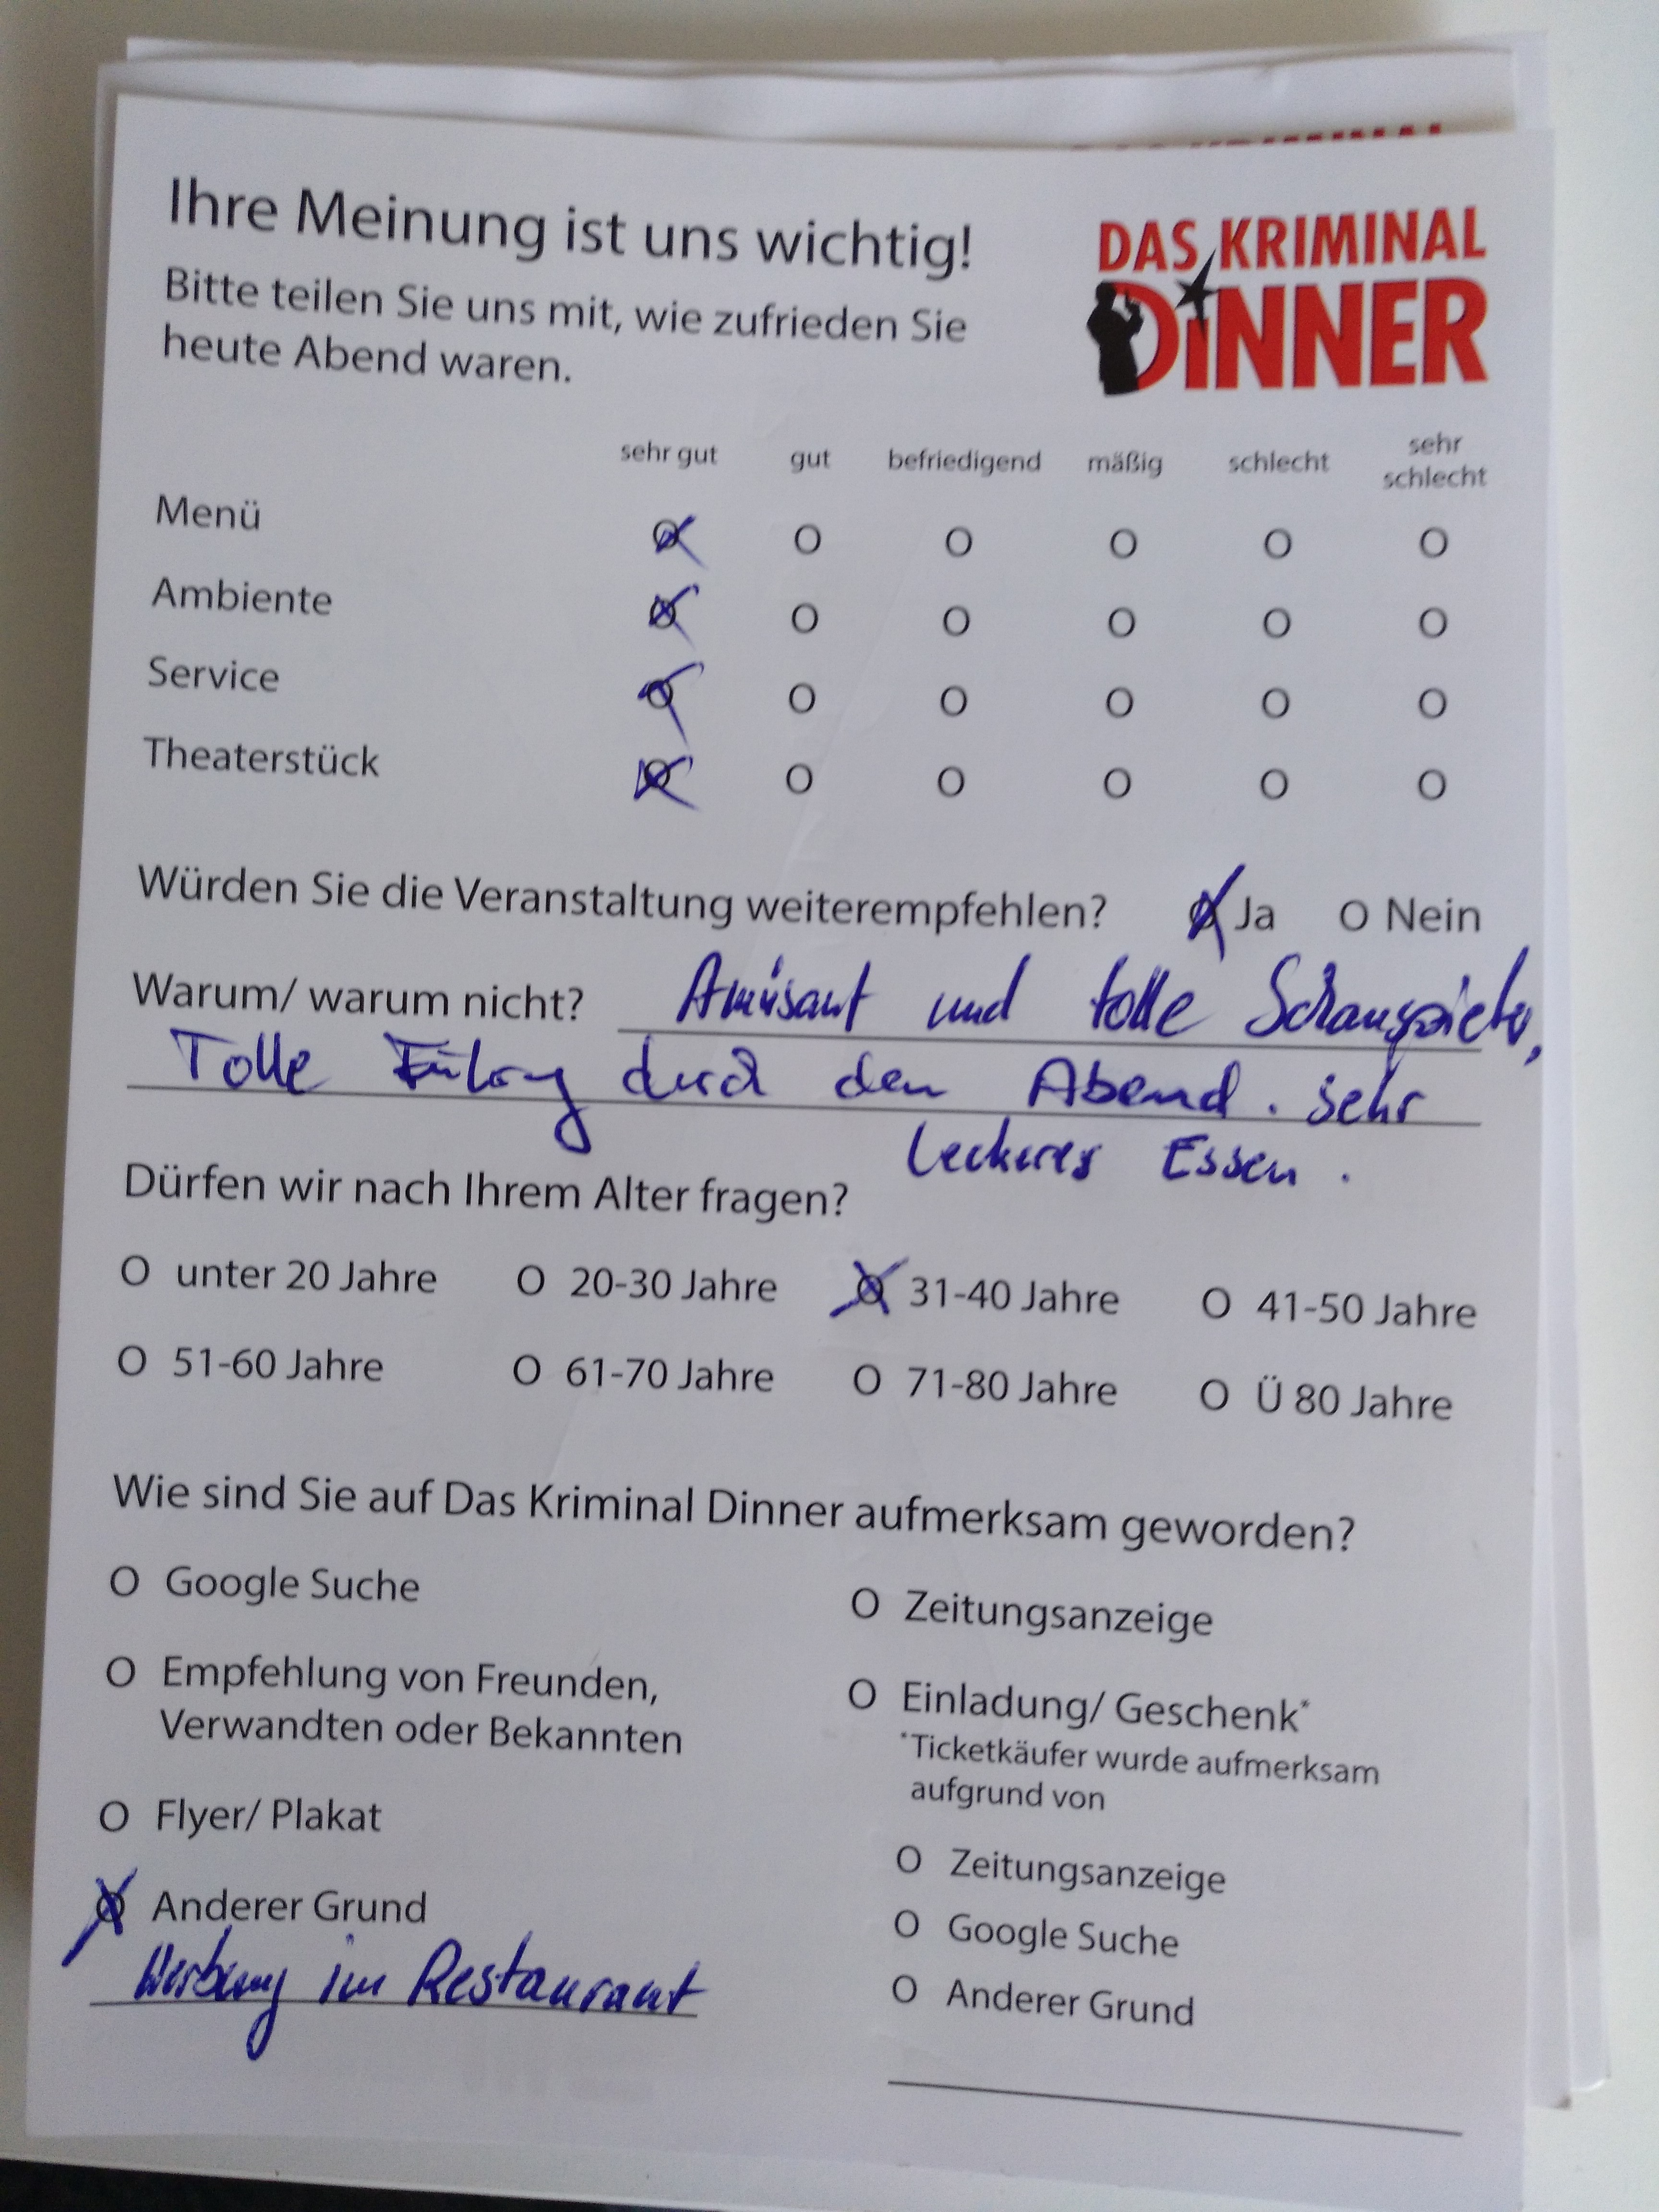 Ihre Meinung ist uns wichtig!
Bitte teilen Sie uns mit, wie zufrieden Sie
heute Abend waren.
DAS KRIMINAL
DiNNER
sehr gut gut befriedigend mäßig schlecht sehr schlecht
Menü O O O O O O
Ambiente O O O O O O
Service O O O O O O
Theaterstück O O O O O O
Würden Sie die Veranstaltung weiterempfehlen? O Ja O Nein
Warum/ warum nicht? Amüsant und tolle Schauspieler,
Tolle Führung durch den Abend. sehr
leckeres Essen.
Dürfen wir nach Ihrem Alter fragen?
O unter 20 Jahre O 20-30 Jahre O 31-40 Jahre O 41-50 Jahre
O 51-60 Jahre O 61-70 Jahre O 71-80 Jahre O Ü 80 Jahre
Wie sind Sie auf Das Kriminal Dinner aufmerksam geworden?
O Google Suche
O Empfehlung von Freunden,
Verwandten oder Bekannten
O Flyer/ Plakat
O Anderer Grund
Werbung im Restaurant
O Zeitungsanzeige
O Einladung/ Geschenk*
*Ticketkäufer wurde aufmerksam
aufgrund von
O Zeitungsanzeige
O Google Suche
O Anderer Grund